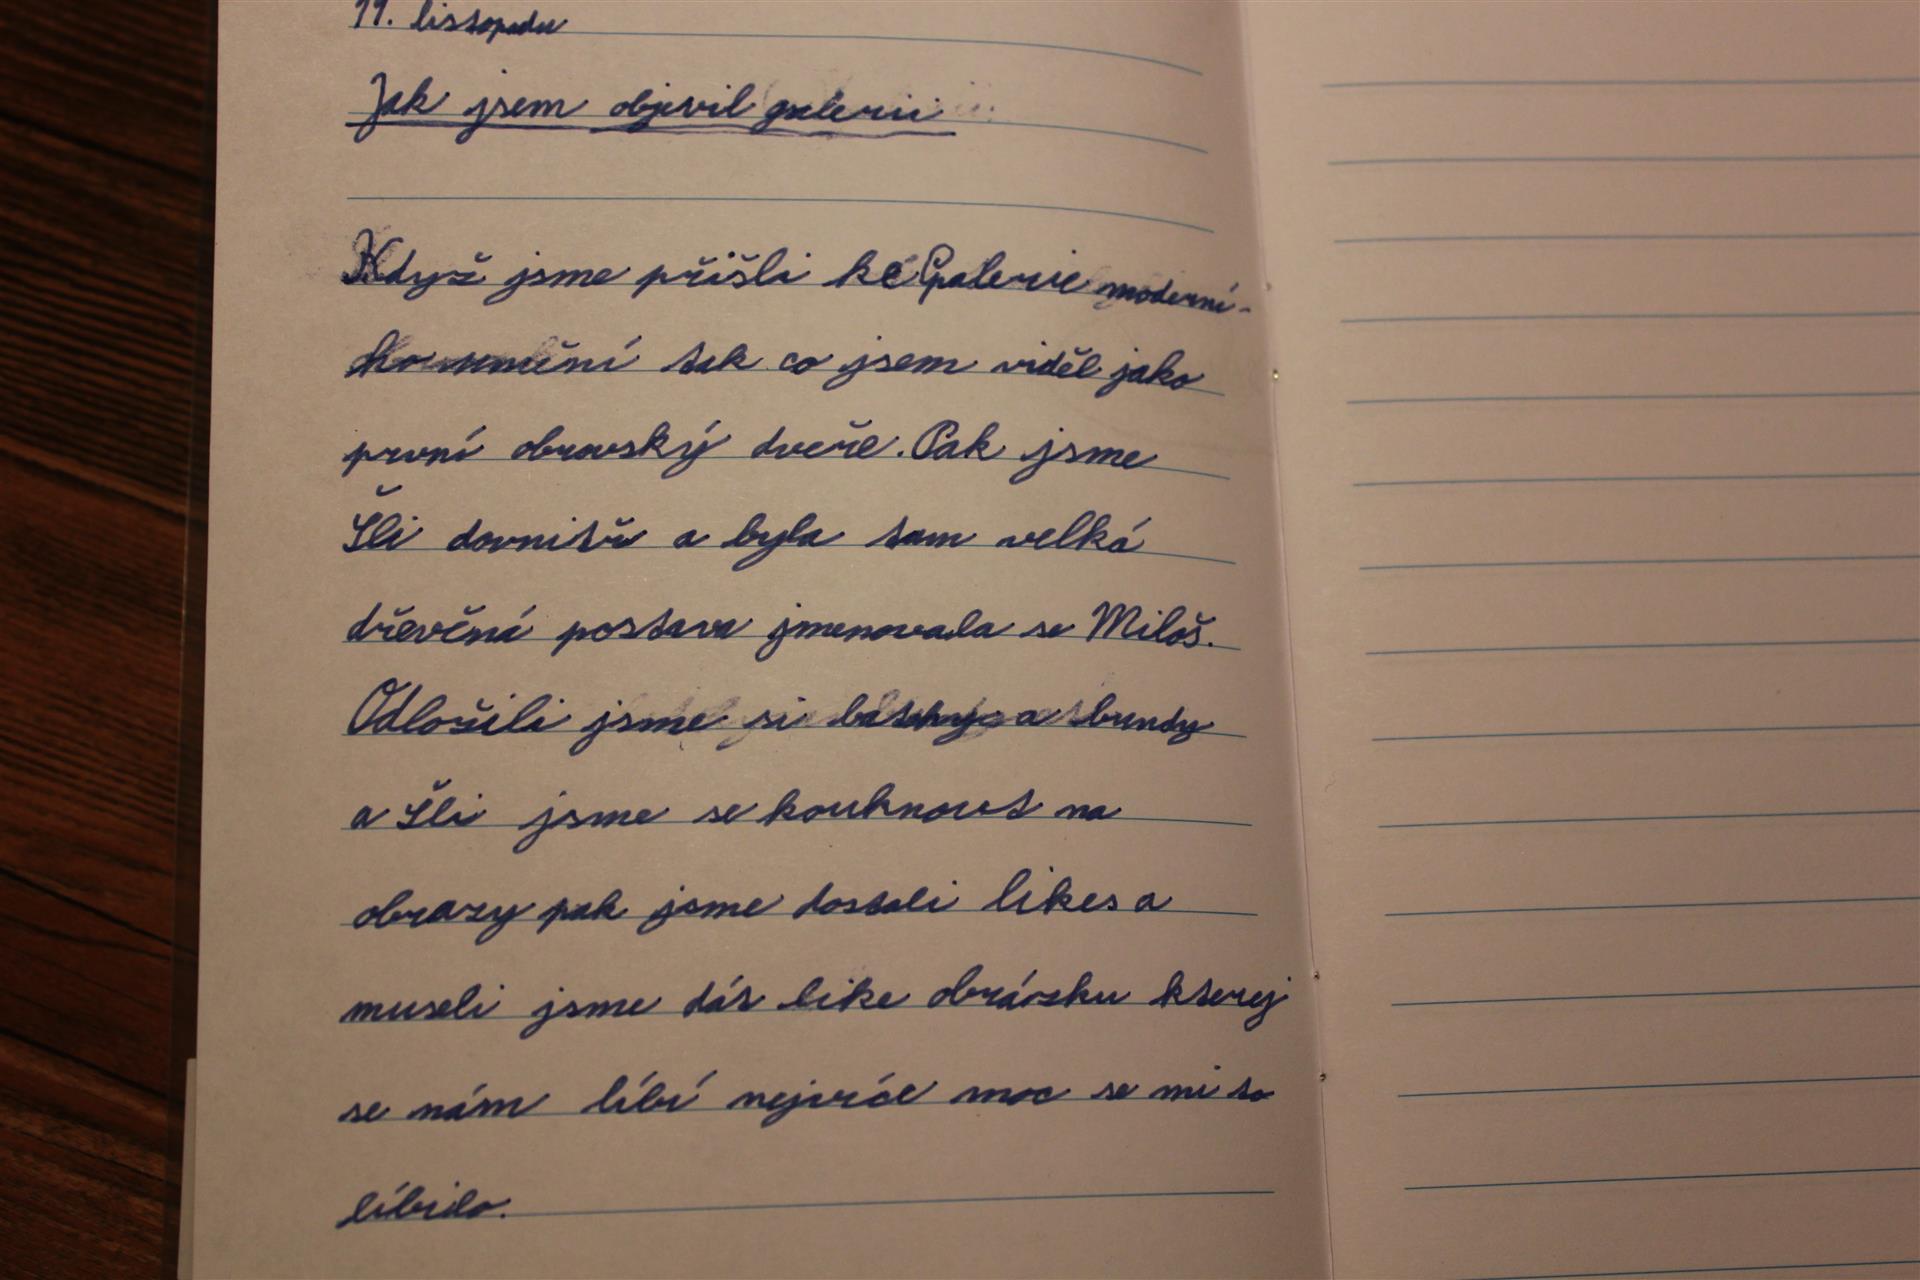 11. listopadu
Jak jsem objevil galerii
Když jsme přišli ke Galerie moderní-
ho umění tak co jsem viděl jako
první obrovský dveře. Pak jsme
Šli dovnitř a byla tam velká
dřevěná postava jmenovala se Miloš.
Odložili jsme si batohy a bundy
a Šli jsme se kouknout na
obrazy pak jsme dostali likes a
museli jsme dát like obrázku kterej
se nám líbí nejvíce moc se mi to
líbilo.